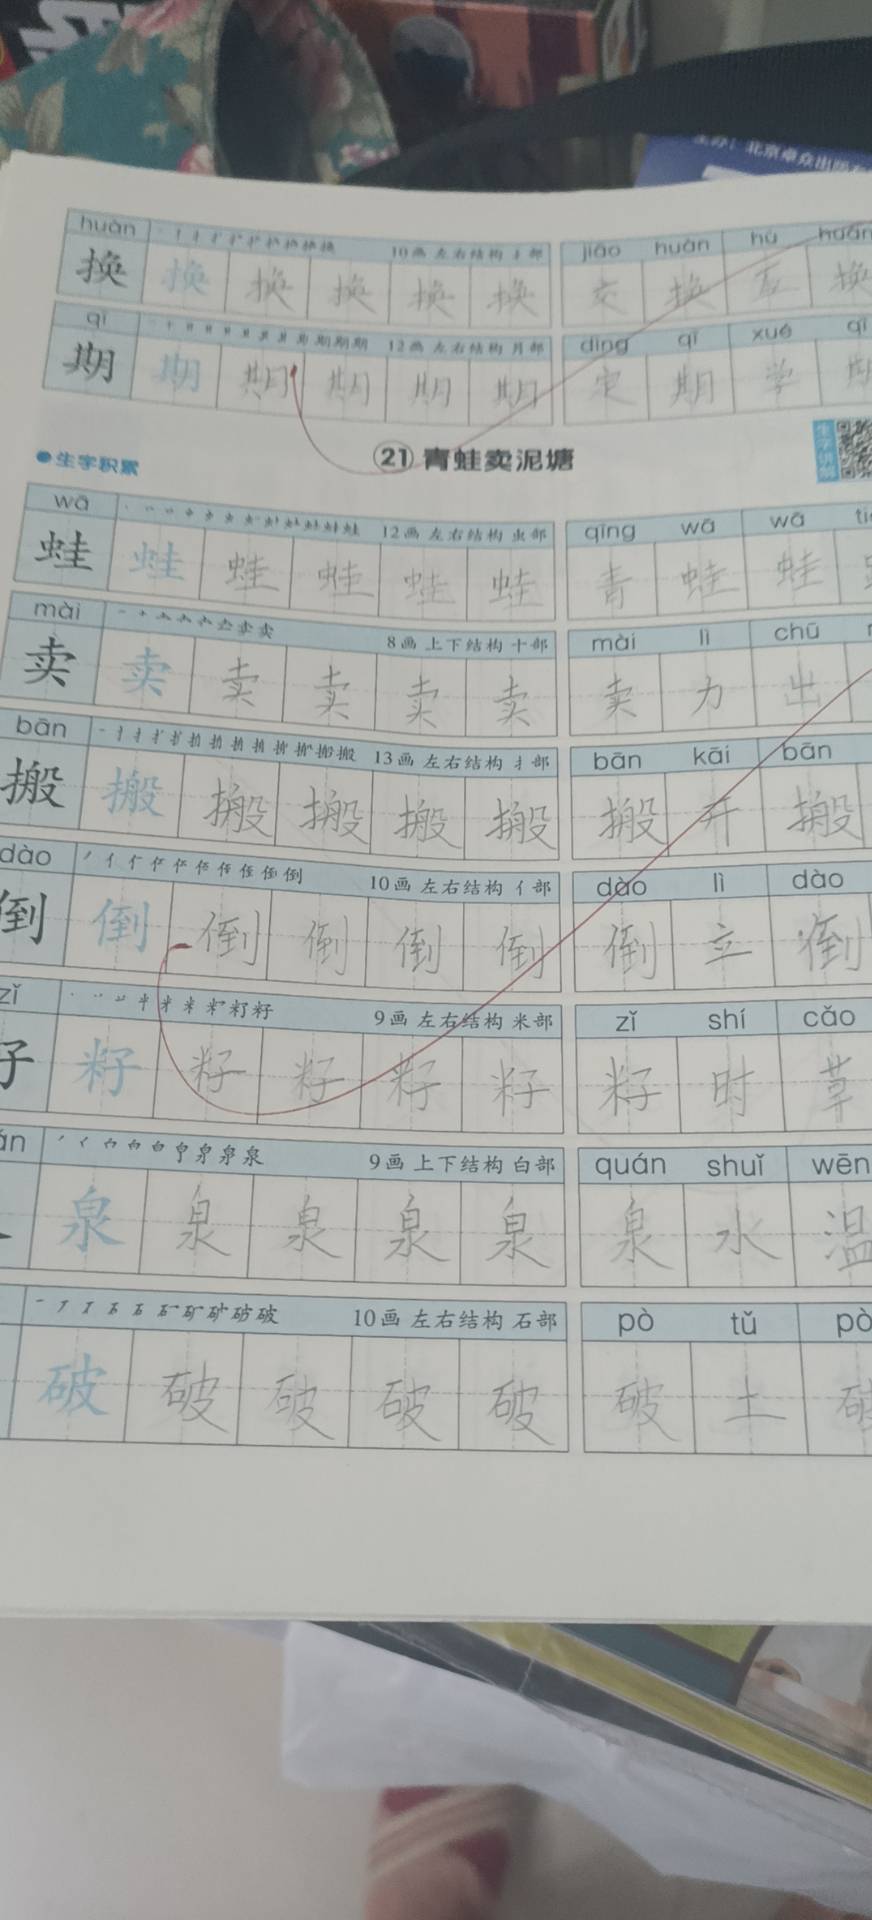 北京卓众出版
huàn 10画 左右结构 扌部 jiāo huàn hù huàn
换 换 换 换 换 换 交 换 互 换
qī 12画 左右结构 月部 dìng qī xué qī
期 期 期 期 期 期 定 期 学 期
生字积累
21 青蛙卖泥塘
wā 12画 左右结构 虫部 qīng wā wā
蛙 蛙 蛙 蛙 蛙 蛙 青 蛙 蛙
mài 8画 上下结构 十部 mài lì chū
卖 卖 卖 卖 卖 卖 卖 力 出
bān 13画 左右结构 扌部 bān kāi bān
搬 搬 搬 搬 搬 搬 搬 开 搬
dào 10画 左右结构 亻部 dào lì dào
倒 倒 倒 倒 倒 倒 倒 立 倒
zǐ 9画 左右结构 米部 zǐ shí cǎo
籽 籽 籽 籽 籽 籽 时 草
9画 上下结构 白部 quán shuǐ wēn
泉 泉 泉 泉 泉 泉 水 温
10画 左右结构 石部 pò tǔ pò
破 破 破 破 破 破 土 破